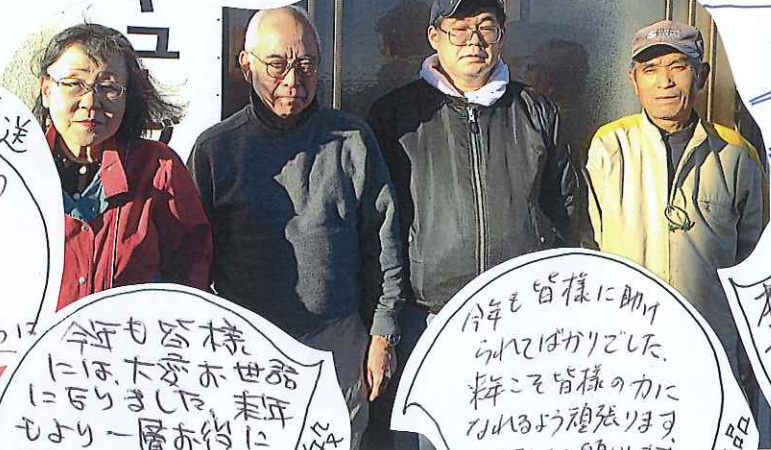 ュ
送
今年も皆様
には、大変お世話
になりました。来年
もより一層お役に
今年も皆様に助け
られてばかりでした。
来年こそ皆様の力に
なれるよう頑張ります。
品